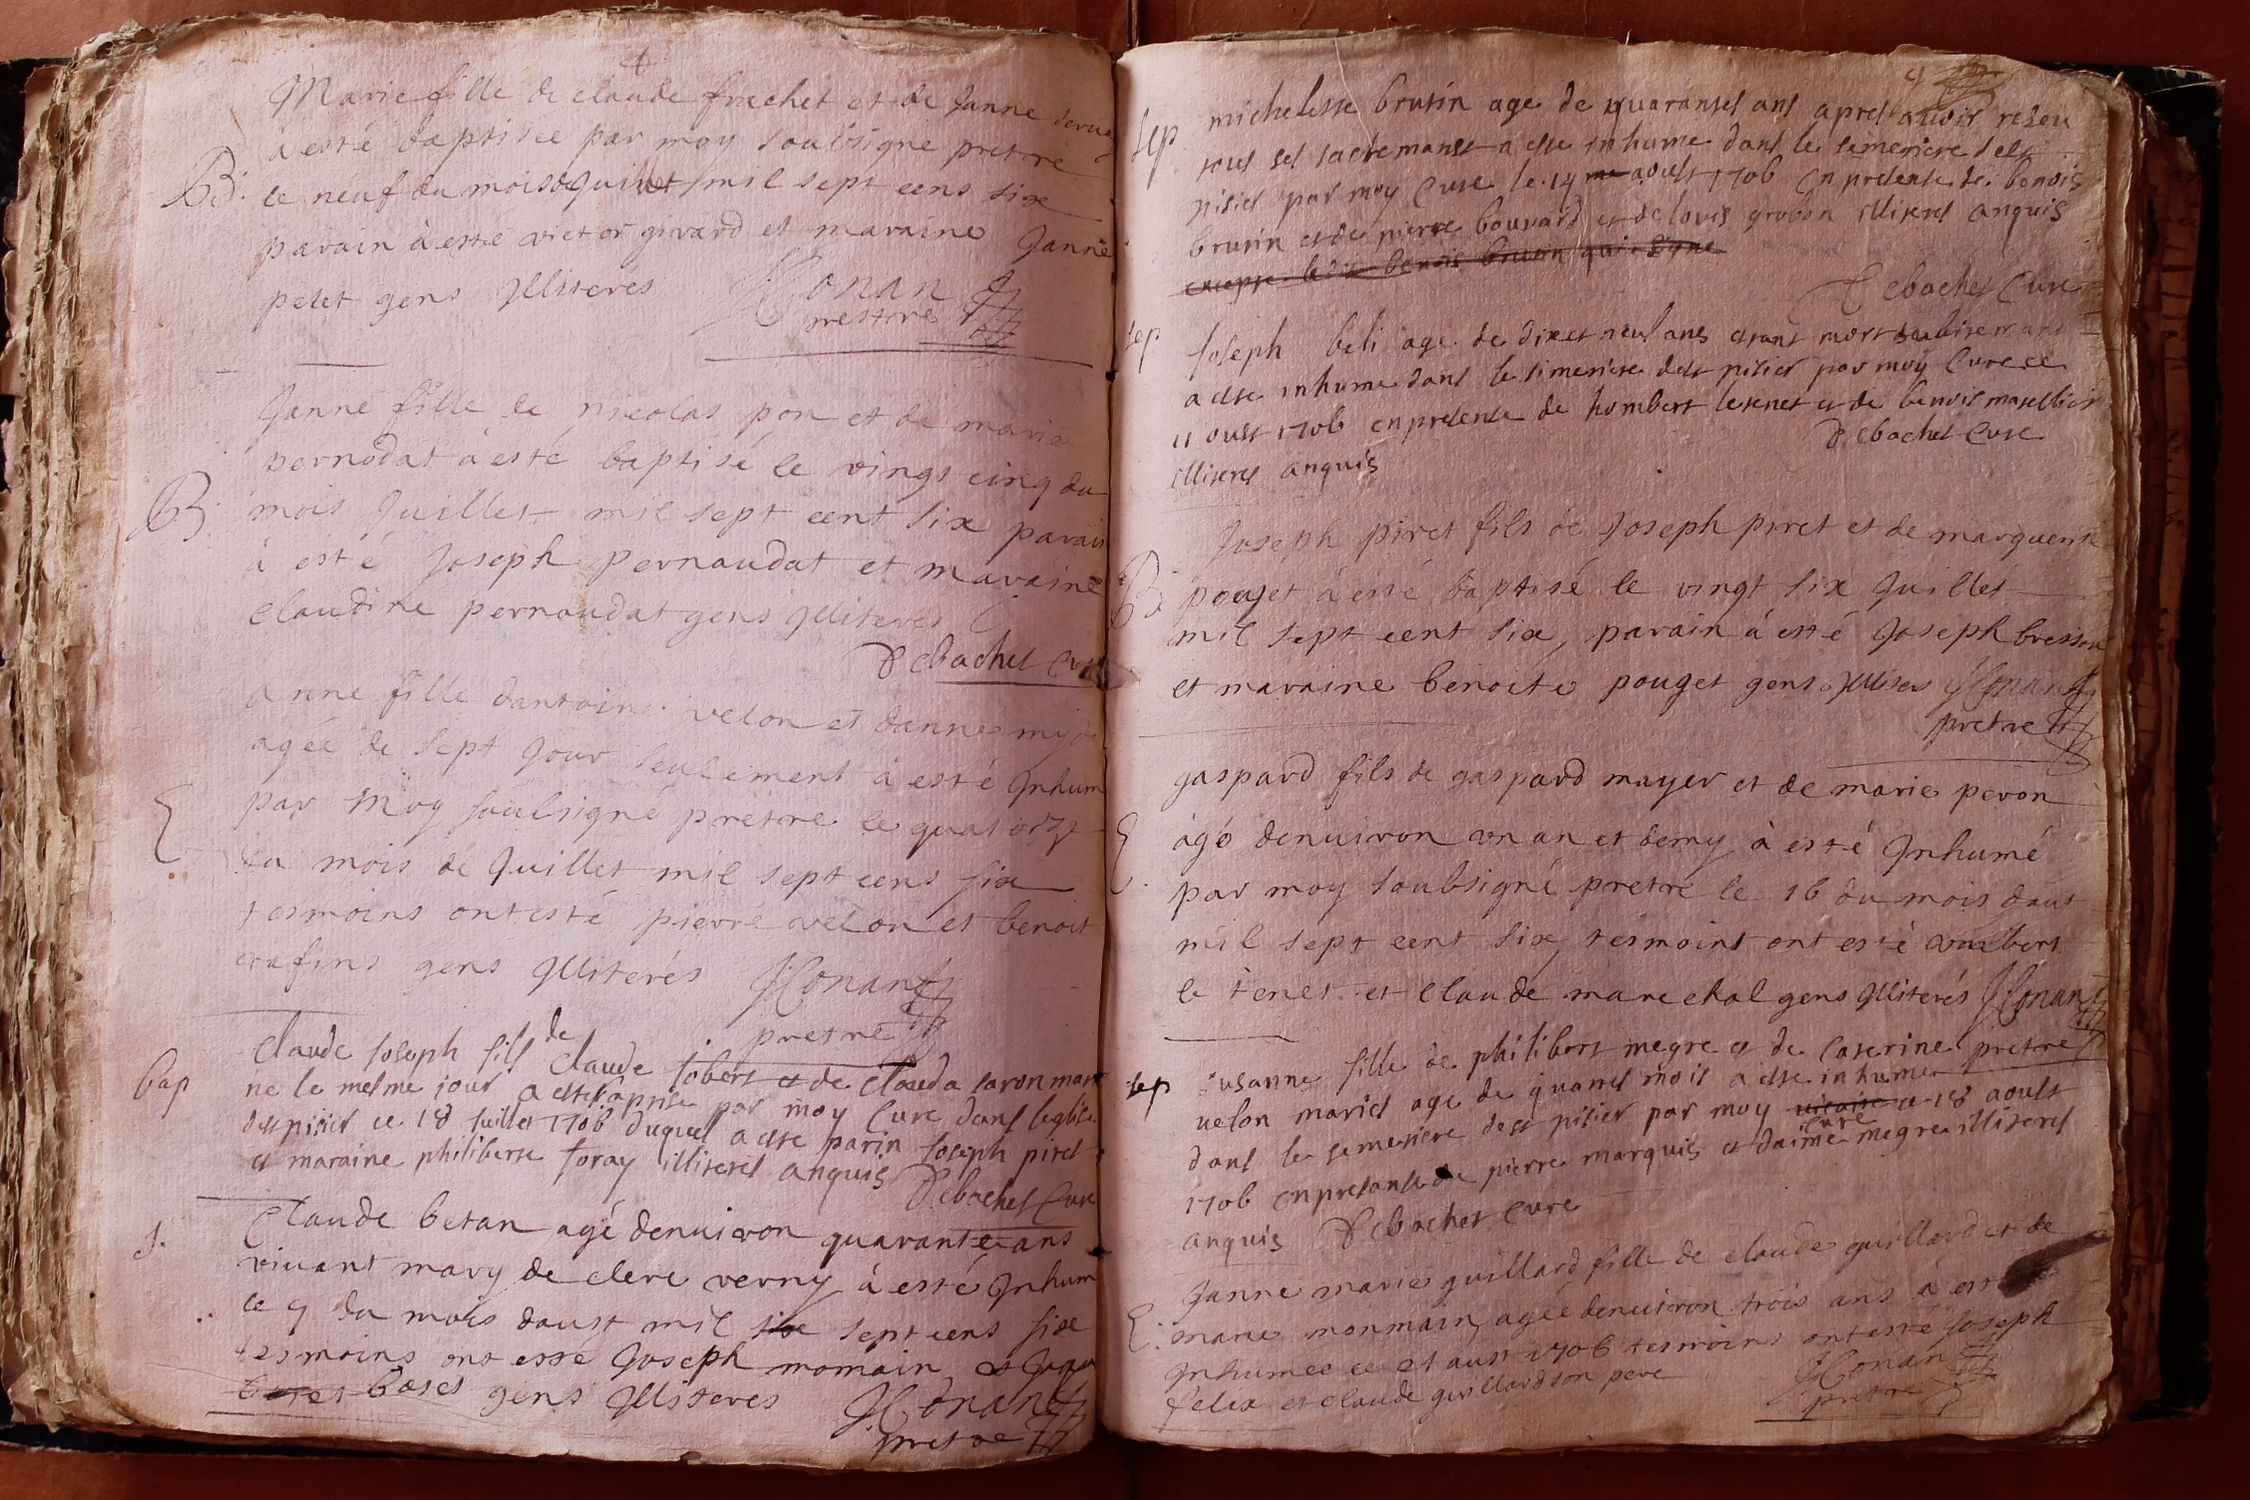 Marie fille de claude frechet et de Janne
à esté baptisée par moy soubsigné pretre
B. le neuf du mois de Juillet mil sept cens six
parain à esté victor girard et maraine Janne
petet gens Illiterés JConan
prestre
Janné fille de nicolas pon et de marie
pernodat à esté baptisé le vingt cinq du
B. mois Juillet mil sept cent six parain
à esté Joseph pernaudat et maraine
claudine pernaudat gens Illiteres
Debachet Cure
anne fille dantoine velon et danne
agée de sept Jour seulement à esté Inhum
par moy soubsigné pretre le quatorze
E du mois de Juillet mil sept cens six
tesmoins ont esté pierre velon et benoit
gens Illiterés JConan
pretre
bap Claude Joseph fils de Claude Jobert et de Clauda
ne le mesme jour a este par moy Cure dans leglise
ce 18 Juillet 1706 duquel a este parin Joseph piret
et maraine philiberte foray illiteres anquis
Debachet Cure
S. Claude betan agé denuiron quarante ans
viuant mary de clere verny à esté Inhum
le 9 du mois daust mil six sept cens six
tesmoins ont esté Joseph momain et
gens Illiteres JConan
pretre
9
sep michelette brusin age de quarantes ans apres auoir reseu
tous ses sacremants a este inhume dans le simetiere dest
nisier par moy Cure le 14 aoust 1706 en presente de benois
brusin et de pierre bouvard et de louis grobon illiteres anquis
excepte ledit benois brusin qui signe
Debachet Cure
sep Joseph beli age de dix et neuf ans etant mort subitemant
a este inhume dans le simetiere dest nisier par moy Cure ce
11 oust 1706 en presente de hombert lesenet et de benois
illiteres anquis Debachet Cure
Joseph piret fils de Joseph piret et de marguerite
B. pouget à esté baptisé le vingt six Juillet
mil sept cent six, parain à esté Joseph bresson
et maraine benoite pouget gens Illiteres JConan
pretre
gaspard fils de gaspard mayer et de marie peron
E. âgé denuiron un an et demy à esté Inhumé
par moy soubsigné pretre le 16 du mois daust
mil sept cent six tesmoins ont esté
le tenet et claude marechal gens Illiterés JConan
pretre
sep susanne fille de philibert megre et de Caterine
velon maries age de quatres mois a este inhume
dans le semetiere dest nisier par moy vicaire cure ce 18 aoust
1706 en presante de pierre marquis et daime megre illiteres
anquis Debachet Cure
Janne marie guillard fille de claude guillard et de
E. marie monmain, agée denuiron trois ans à esté
Inhumée ce 21 aust 1706 tesmoins ont esté Joseph
felix et claude guillard son pere JConan
pretre